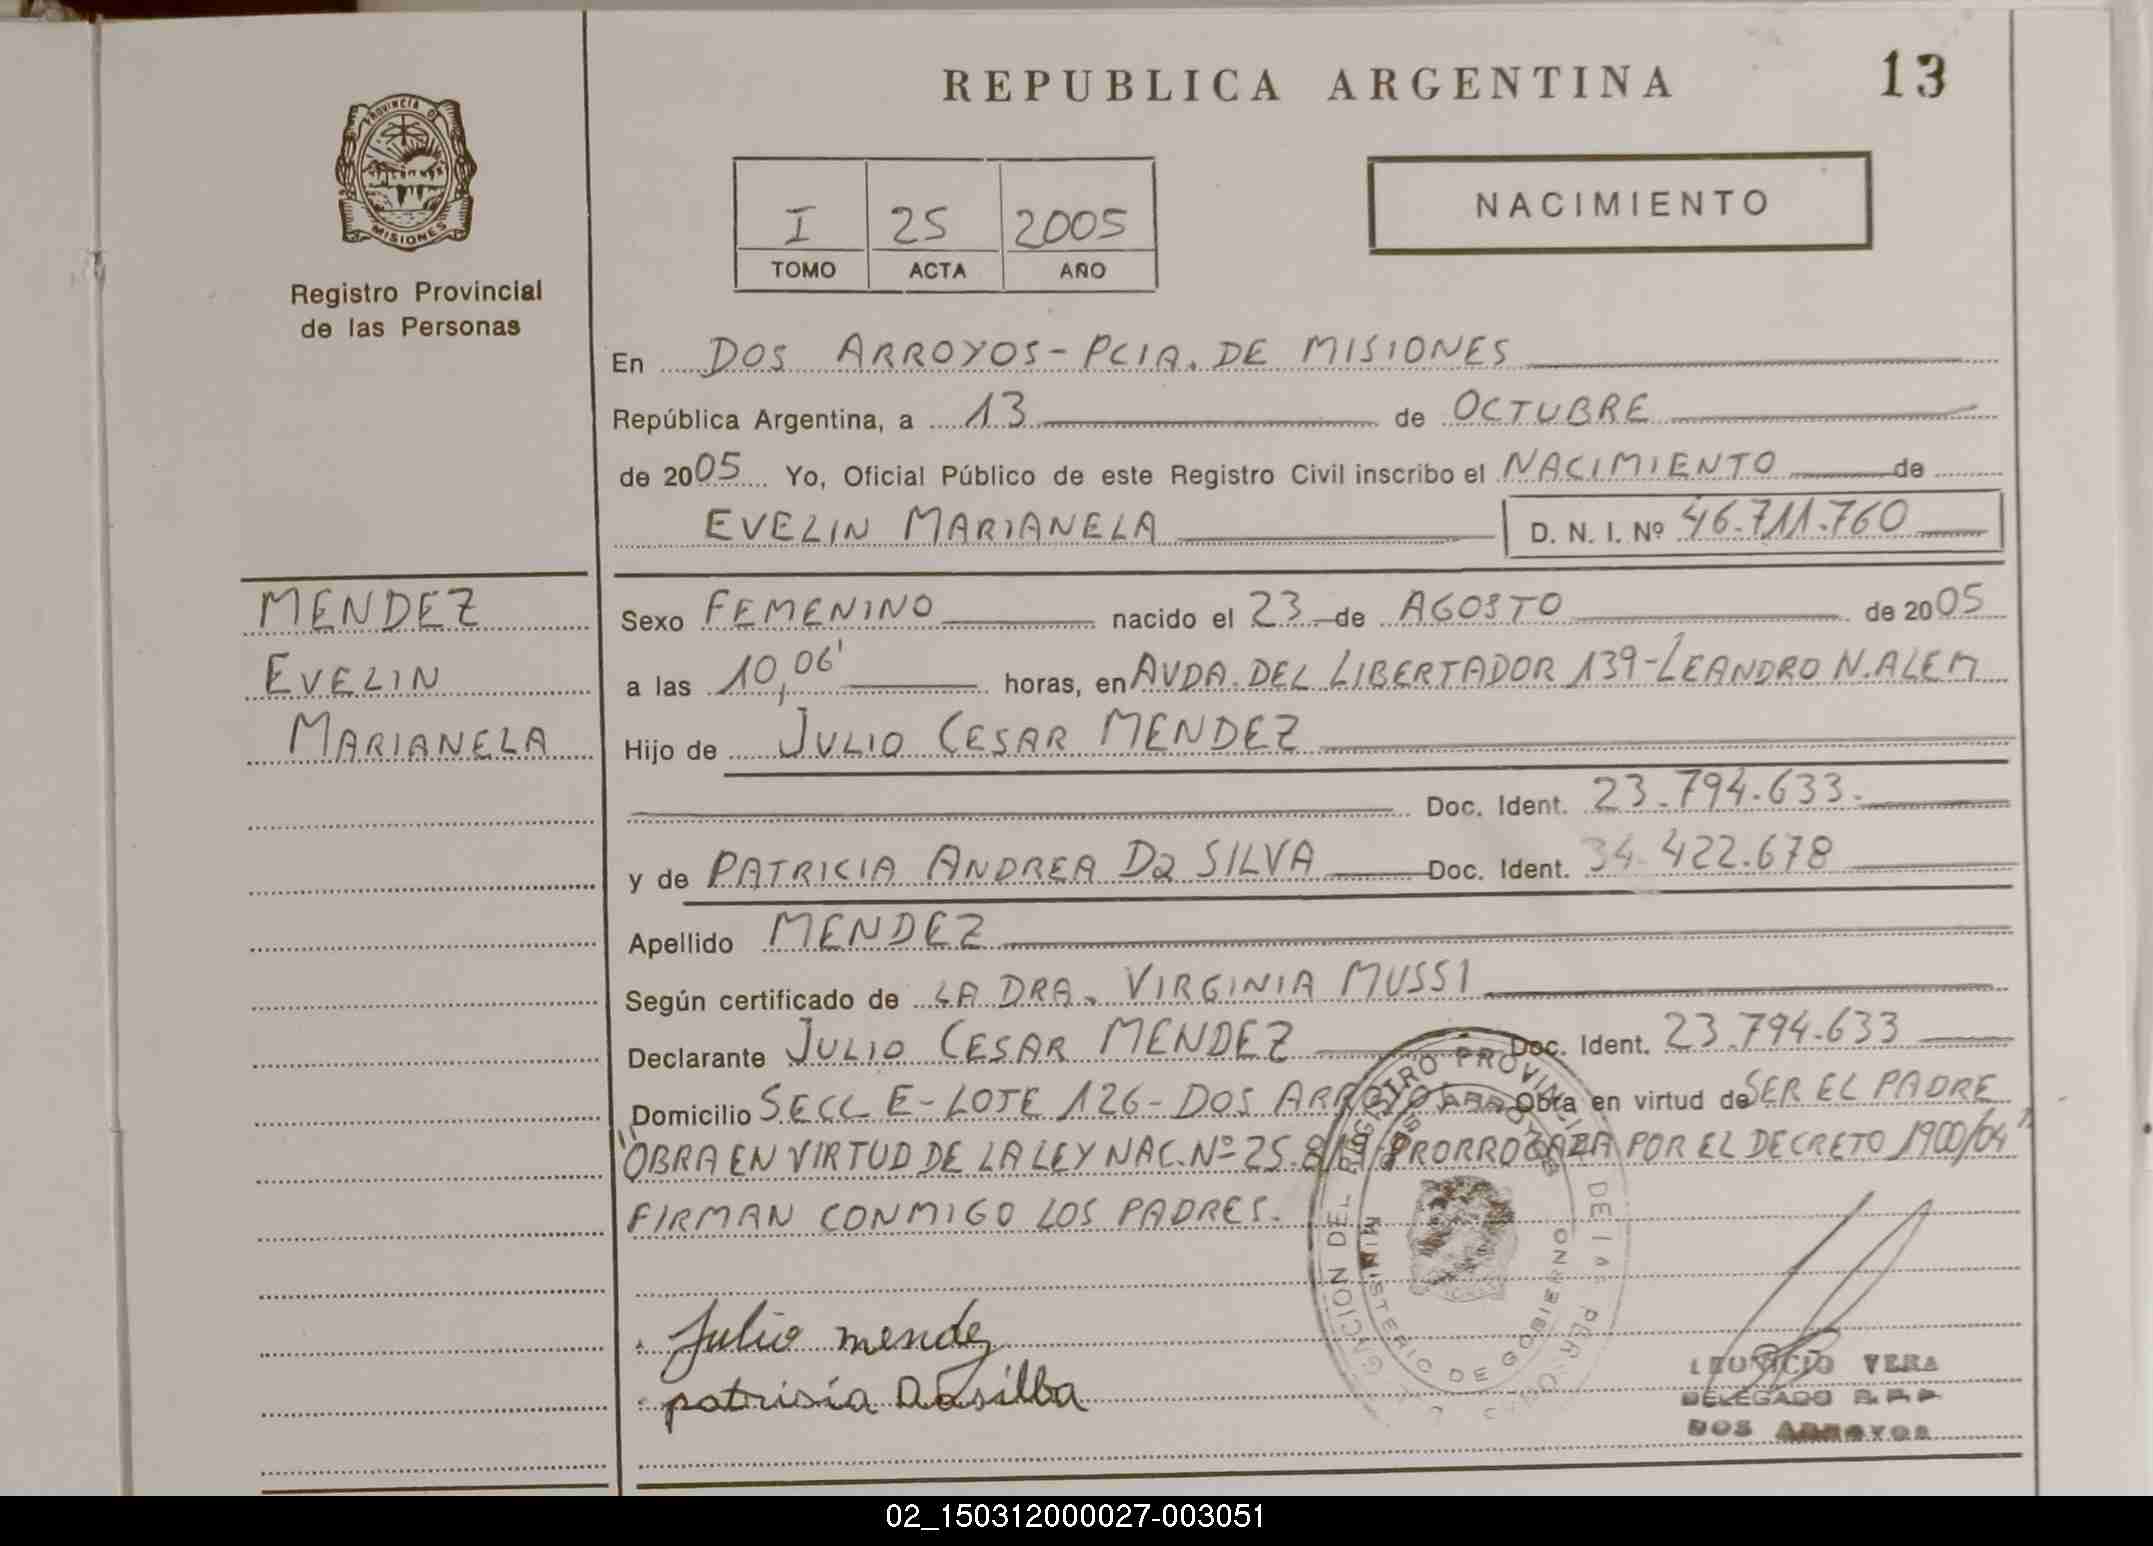 REPUBLICA ARGENTINA
13
PROVINCIA DE
MISIONES
Registro Provincial
de las Personas
I 25 2005
TOMO ACTA AÑO
NACIMIENTO
En DOS ARROYOS - PCIA. DE MISIONES
República Argentina, a 13 de OCTUBRE
de 2005 Yo, Oficial Público de este Registro Civil inscribo el NACIMIENTO de
EVELIN MARIANELA D. N. I. Nº 46.711.760
MENDEZ
EVELIN
MARIANELA
Sexo FEMENINO nacido el 23 de AGOSTO de 2005
a las 10,06' horas, en AVDA. DEL LIBERTADOR 139-LEANDRO N. ALEM
Hijo de JULIO CESAR MENDEZ
Doc. Ident. 23.794.633.
y de PATRICIA ANDREA Da SILVA Doc. Ident. 34.422.678
Apellido MENDEZ
Según certificado de LA DRA. VIRGINIA MUSSI
Declarante JULIO CESAR MENDEZ Doc. Ident. 23.794.633
Domicilio SECC E - LOTE 126 - DOS ARROYOS Obra en virtud de SER EL PADRE
"OBRA EN VIRTUD DE LA LEY NAC. Nº 25.819 PRORROGADA POR EL DECRETO 1900/04"
FIRMAN CONMIGO LOS PADRES.
Julio mendez
patrisia Dasilba
REGISTRO PROVINCIAL DE LAS PERSONAS
MINISTERIO DE GOBIERNO
VERA
DELEGADO R.P.P.
DOS ARROYOS
02_150312000027-003051